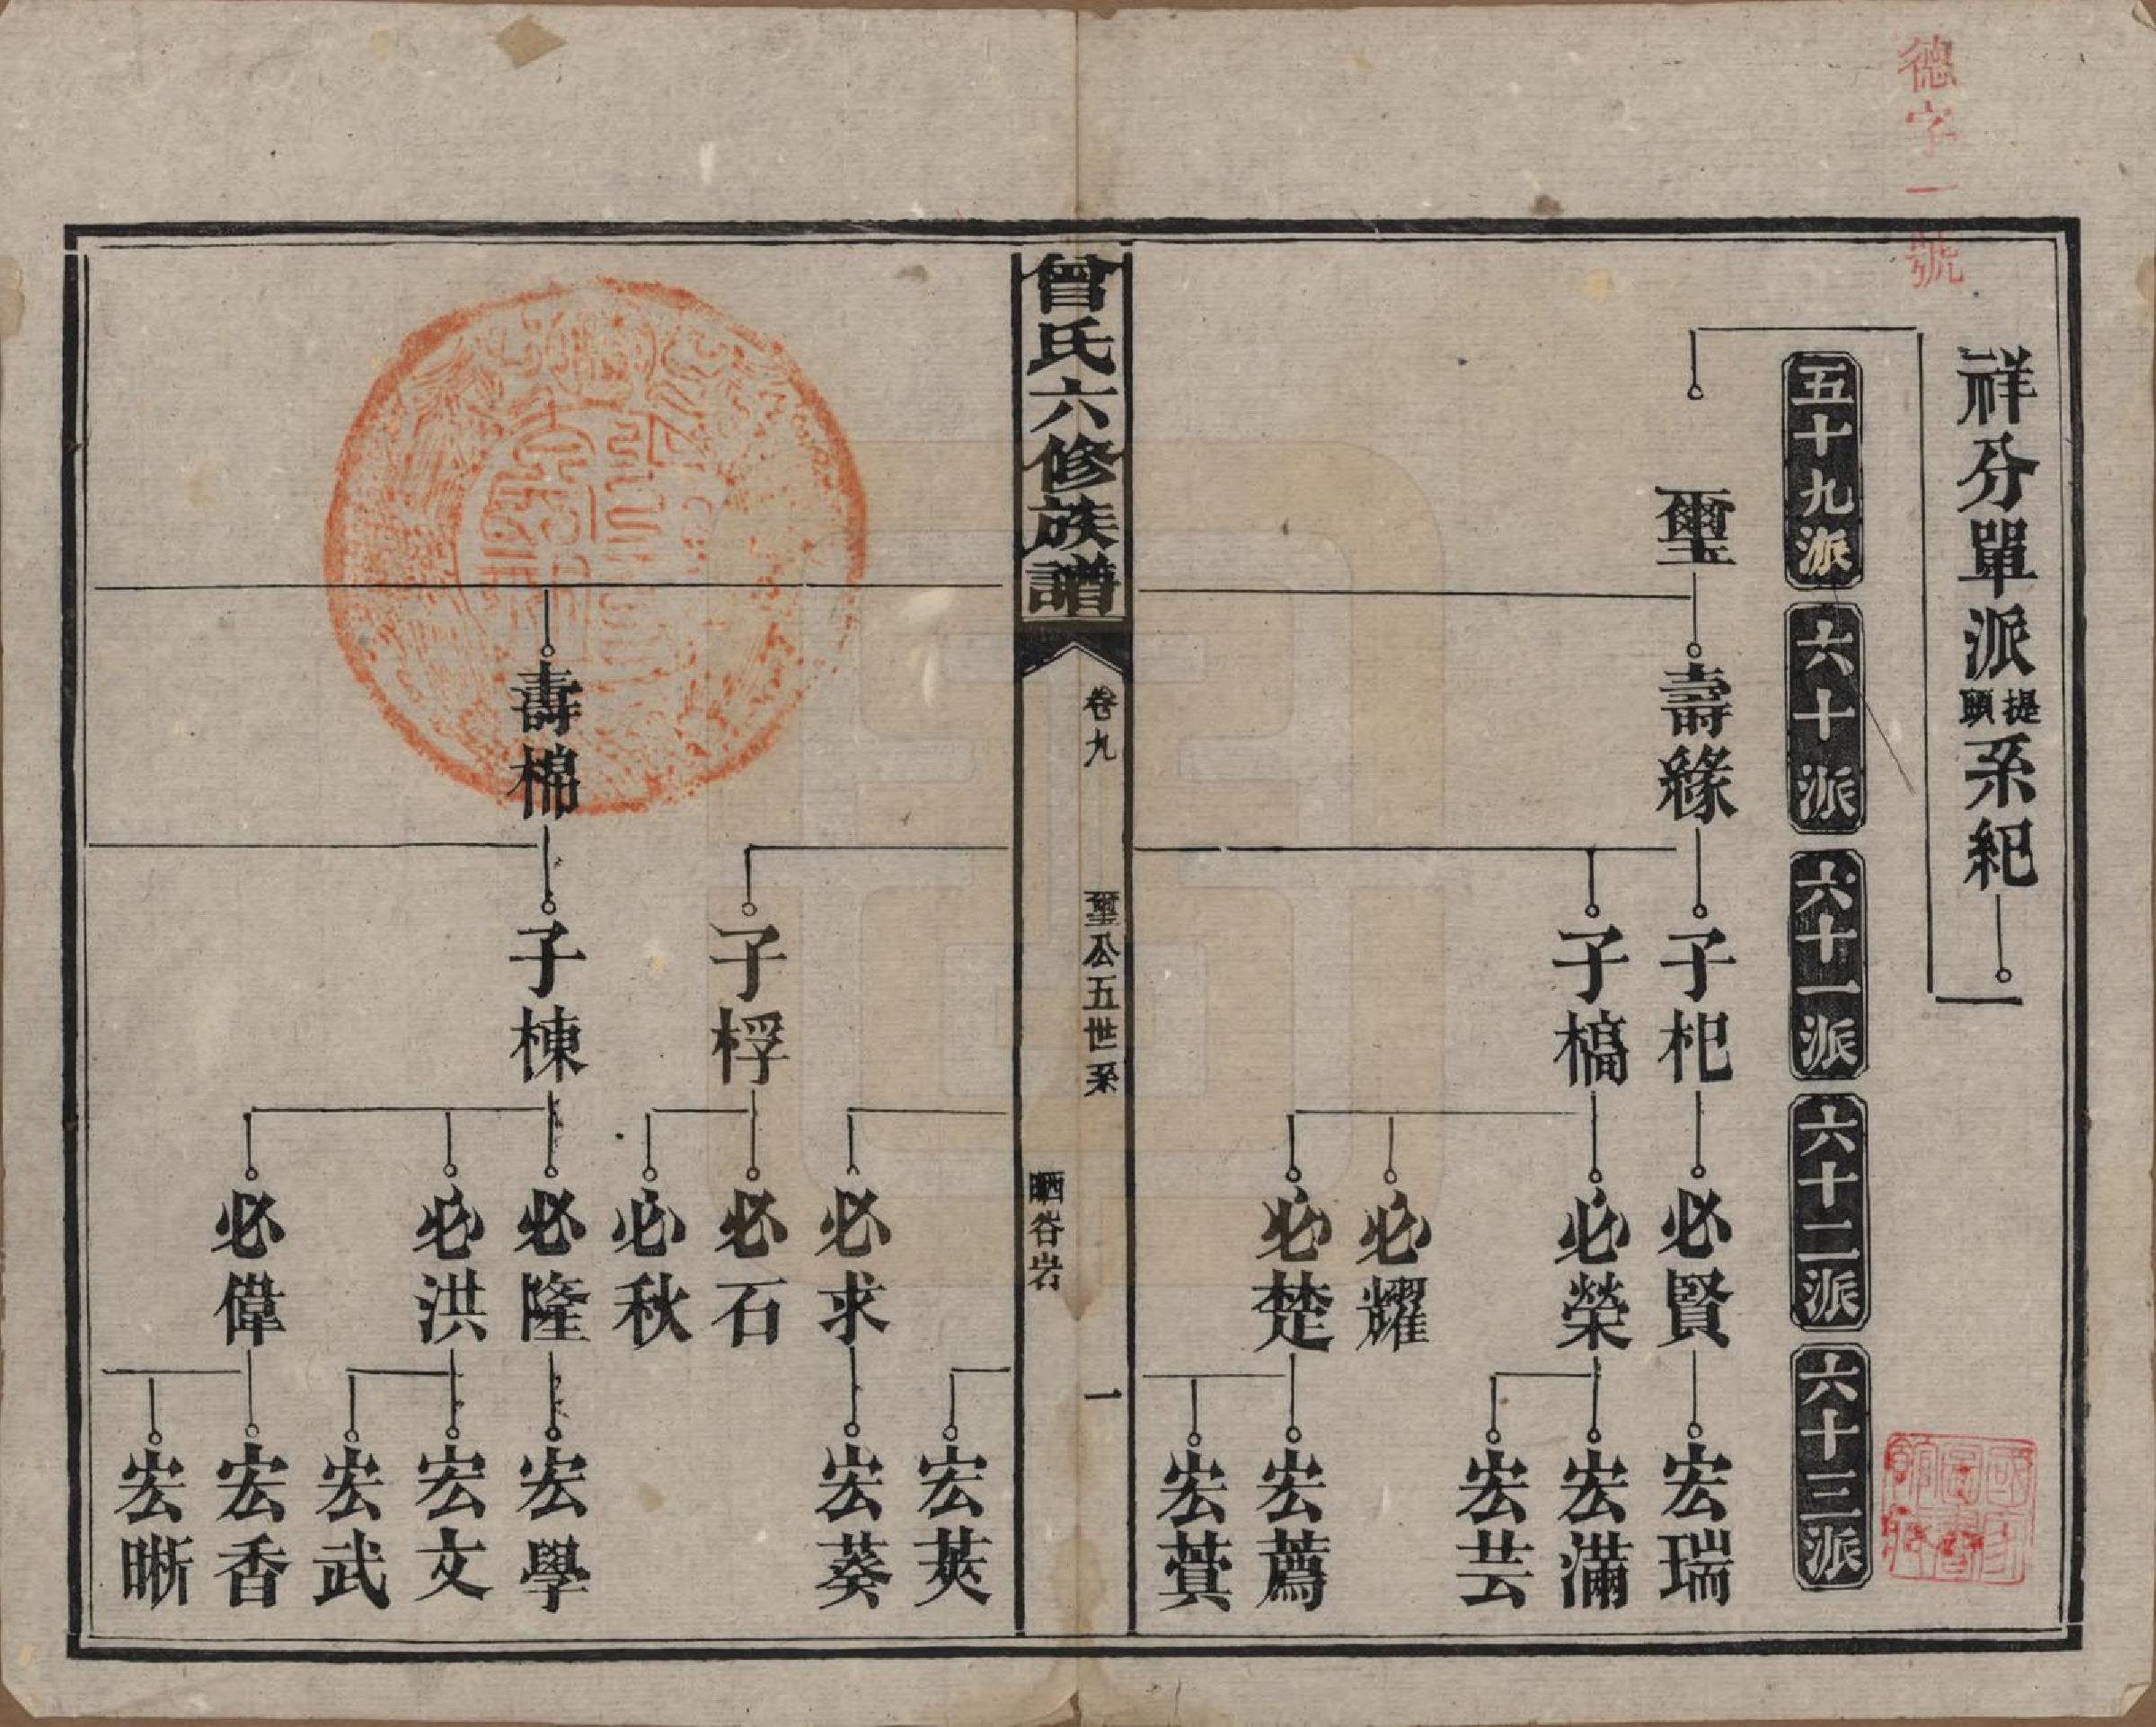 德字一號
祥分單派提頭系紀
五十九派
六十派
六十一派
六十二派
六十三派
璽
壽緣
子杞
必賢
宏瑞
子槁
必榮
宏滿
宏芸
必耀
必楚
宏薦
宏蓂
曾氏六修族譜
卷九
璽公五世系
一
晒谷岩
宏莢
必求
宏葵
子桴
必石
必秋
壽棉
子棟
必隆
宏學
必洪
宏文
宏武
必偉
宏香
宏晰